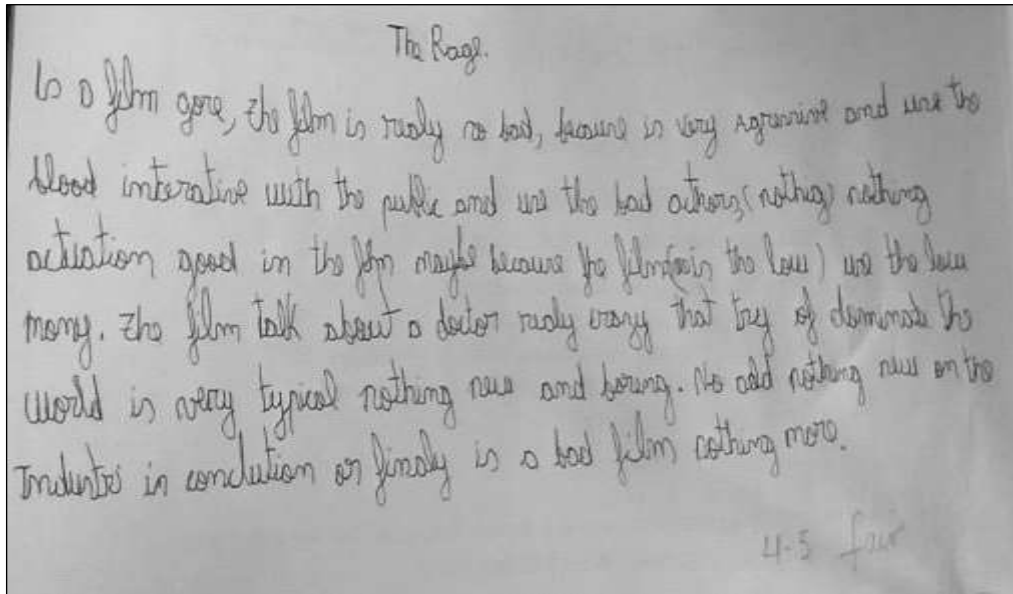 The Rage.
Is a film gore, the film is realy so bad, becaune is very agressive and use the
blood interative with the public and use the bad actors, (nothig) nothing
actuation good in the film maybe because the film (is in the low) use the low
mony. The film talk about a doctor realy crazy that try of dominate the
world is very typical nothing new and boring. No add nothing new on the
Industri in conclution or finaly is a bad film nothing more.
4.5 fair